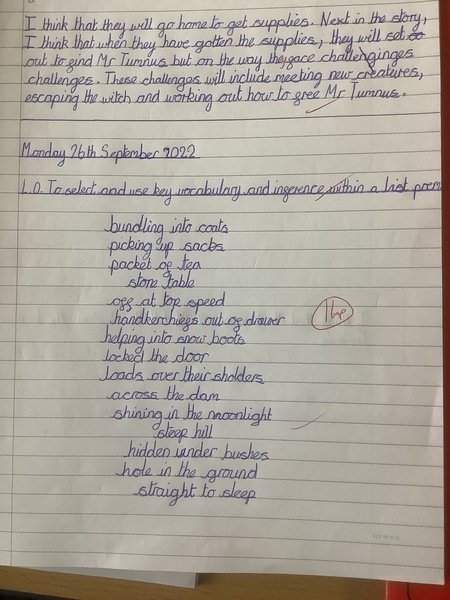 I think that they will go home to get supplies. Next in the story,
I think that when they have gotten the supplies, they will set so
out to find Mr Tumnus but on the way they face challenginges
challenges. These challenges will include meeting new creatures,
escaping the witch and working out how to free Mr Tumnus.
Monday 26th September 2022
L.O. To select and use key vocabulary and inference within a list poem
bundling into coats
picking up sacks
packet of tea
stone table
off at top speed
handkerchiefs out of drawer
helping into snow boots
locked the door
Loads over their sholders
across the dam
shining in the moonlight
steep hill
hidden under bushes
hole in the ground
straight to sleep